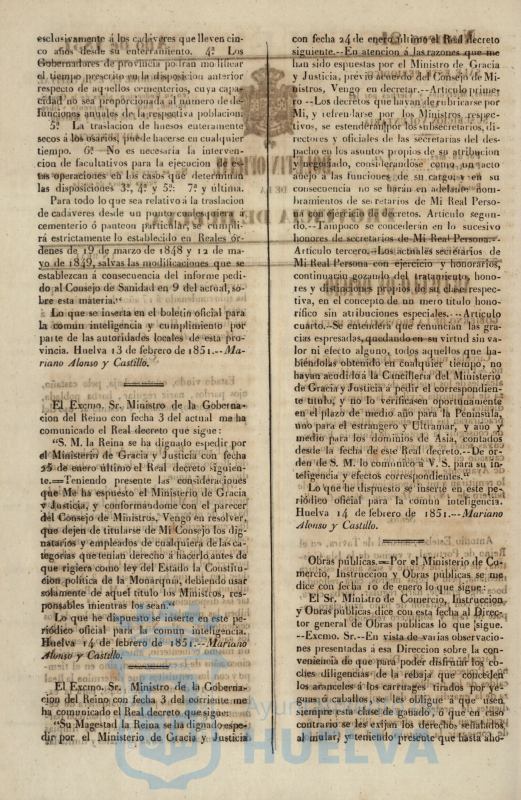 esclusivamente á los cadáveres que lleven cin-
co años desde su enterramiento. 4.ª Los
Gobernadores de provincia podran modificar
el tiempo prescrito en la disposicion anterior
respecto de aquellos cementerios, cuya capa-
cidad no sea proporcionada al número de de-
funciones anuales de la respectiva poblacion
5.ª La traslacion de huesos enteramente
secos á los osarios, puede hacerse en cualquier
tiempo. 6.ª No es necesaria la interven-
cion de facultativos para la ejecucion de es-
tas operaciones en los casos que determinan
las disposiciones 3.ª, 4.ª y 5.ª: 7.ª y última.
Para todo lo que sea relativo á la traslacion
de cadaveres desde un punto cualquiera á
cementerio ó panteon particular, se cumpli-
rá estrictamente lo establecido en Reales ór-
denes de 19 de marzo de 1848 y 12 de ma-
yo de 1849, salvas las modificaciones que se
establezcan á consecuencia del informe pedi-
do al Consejo de Sanidad en 9 del actual, so-
bre esta materia."
Lo que se inserta en el boletin oficial para
la comun inteligencia y cumplimiento por
parte de las autoridades locales de esta pro-
vincia. Huelva 13 de febrero de 1851.--Ma-
riano Alonso y Castillo.
El Excmo. Sr. Ministro de la Goberna-
cion del Reino con fecha 3 del actual me ha
comunicado el Real decreto que sigue:
"S. M. la Reina se ha dignado espedir por
el Ministerio de Gracia y Justicia con fecha
25 de enero último el Real decreto siguien-
te.=Teniendo presente las consideraciones
que Me ha espuesto el Ministerio de Gracia
y Justicia, y conformandome con el parecer
del Consejo de Ministros, Vengo en resolver,
que dejen de titularse de Mi Consejo los dig-
natarios y empleados de cualquiera de las ca-
tegorias que tenian derecho á hacerlo antes de
que rigiera como ley del Estado la Constitu-
cion politica de la Monarquía, debiendo usar
solamente de aquel titulo los Ministros, res-
ponsables mientras los sean."
Lo que he dispuesto se inserte en este pe-
riódico oficial para la comun inteligencia.
Huelva 14 de febrero de 1851.--Mariano
Alonso y Castillo.
El Excmo. Sr. Ministro de la Goberna-
cion del Reino con fecha 3 del corriente me
ha comunicado el Real decreto que sigue:
"Su Magestad la Reina se ha dignado espe-
dir por el Ministerio de Gracia y Justicia
con fecha 24 de enero último el Real decreto
siguiente.--En atencion á las razones que me
han sido espuestas por el Ministro de Gracia
y Justicia, prévio acuerdo del Consejo de Mi-
nistros, Vengo en decretar.--Articulo prime-
ro --Los decretos que hayan de rubricarse por
Mi, y refrendarse por los Ministros respec-
tivos, se estenderán por los subsecretarios, di-
rectores y oficiales de las secretarias del des-
pacho en los asuntos propios de su atribucion
y negociado, considerandose como un acto
anejo á las funciones de su cargo, y en su
consecuencia no se harán en adelante nom-
bramientos de secretarios de Mi Real Perso-
na con ejercicio de decretos. Articulo segun-
do.--Tampoco se concederán en lo sucesivo
honores de secretarios de Mi Real Persona.--
Articulo tercero.--Los actuales secretarios de
Mi Real Persona con ejercicio y honorarios,
continuarán gozando del tratamiento, hono-
res y distinciones propios de su clase respec-
tiva, en el concepto de un mero título hono-
rífico sin atribuciones especiales.--Artículo
cuarto.--Se entenderá que renuncian las gra-
cias espresadas, quedando en su virtud sin va-
lor ni efecto alguno, todos aquellos que ha-
biéndolas obtenido en cualquier tiempo, no
hayan acudido á la Cancilleria del Ministerio
de Gracia y Justicia á pedir el correspondien-
te titulo, y no lo verificasen oportunamente
en el plazo de medio año para la Península,
uno para el estrangero y Ultramar, y año y
medio para los dominios de Asia, contados
desde la fecha de este Real decreto.--De ór-
den de S. M. lo comunico á V. S. para su in-
teligencia y efectos correspondientes."
Lo que he dispuesto se inserte en este pe-
riódico oficial para la comun inteligencia.
Huelva 14 de febrero de 1851.--Mariano
Alonso y Castillo.
Obras públicas.=Por el Ministerio de Co-
mercio, Instruccion y Obras publicas se me
dice con fecha 10 de enero lo que sigue:
El Sr. Ministro de Comercio, Instruccion
y Obras públicas dice con esta fecha al Direc-
tor general de Obras públicas lo que sigue.
--Excmo. Sr.--En vista de varias observacio-
nes presentadas á esa Direccion sobre la con-
veniencia de que para poder disfrutar los co-
ches diligencias de la rebaja que conceden
los aranceles á los carruages tirados por ye-
guas ó caballos, se les obligue á que usen
siempre esta clase de ganado, ó que en caso
contrario se les exijan los derechos señalados
al mular, y teniendo presente que hasta aho-
Ayuntamiento
HUELVA